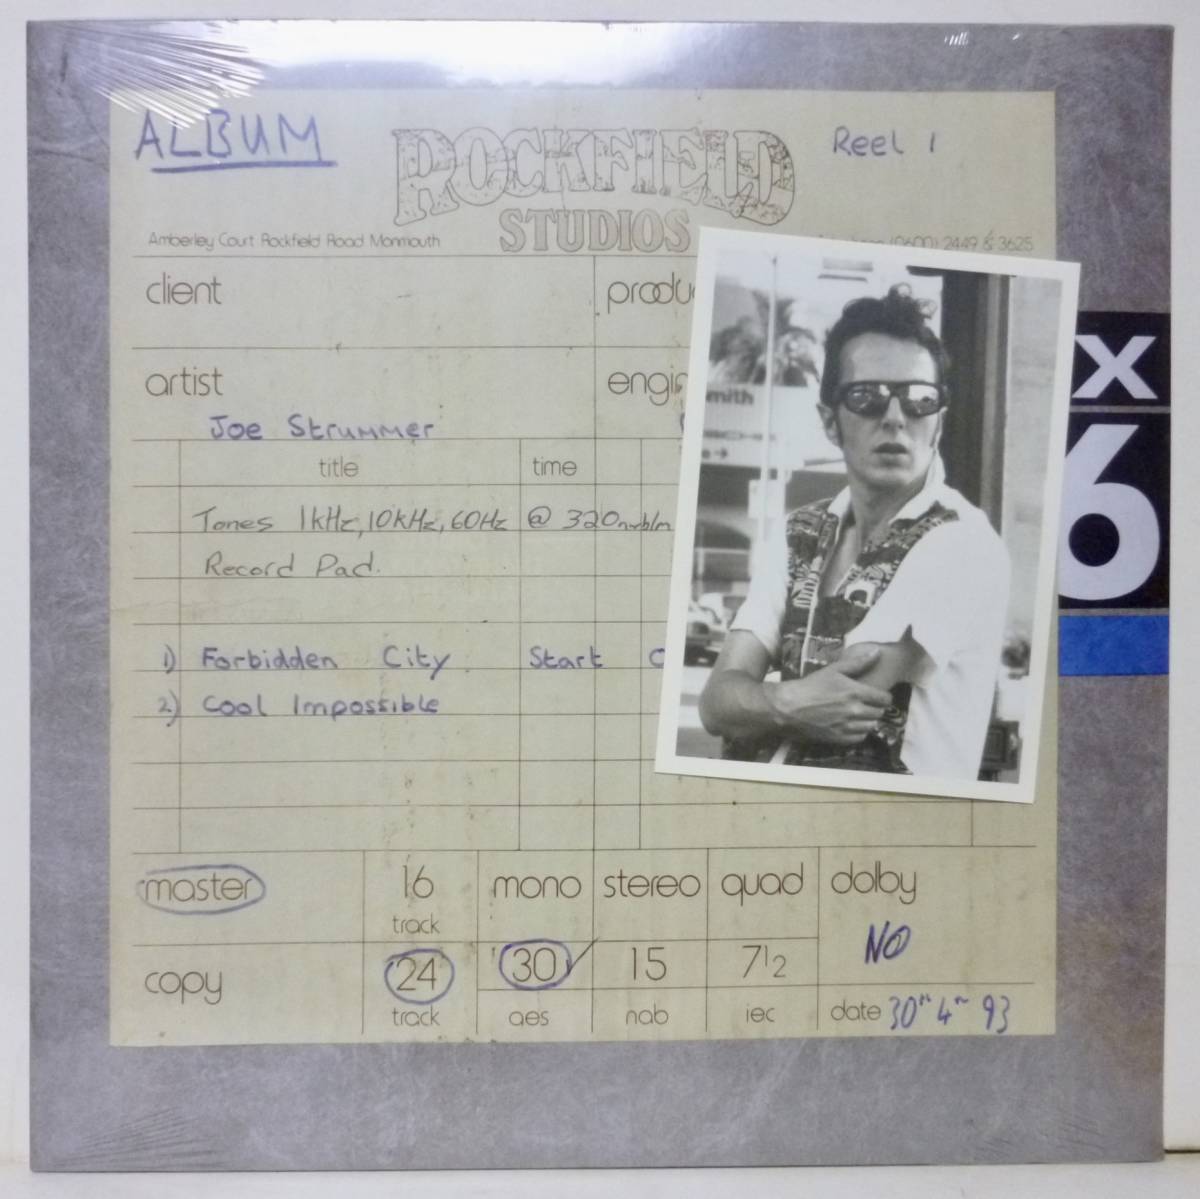 ALBUM
ROCKFIELD
STUDIOS
Reel 1
Amberley Court Rockfield Road Monmouth
(0600) 2449 & 3625
client
produ
artist
engin
Joe Strummer
title time
Tones 1kHz, 10kHz, 60Hz @ 320nwb/m
Record Pad.
1) Forbidden City Start
2) Cool Impossible
mith
x
6
master 16 mono stereo quad dolby
track
NO
copy 24 30 15 7 1/2
track aes nab iec date 30" 4" 93